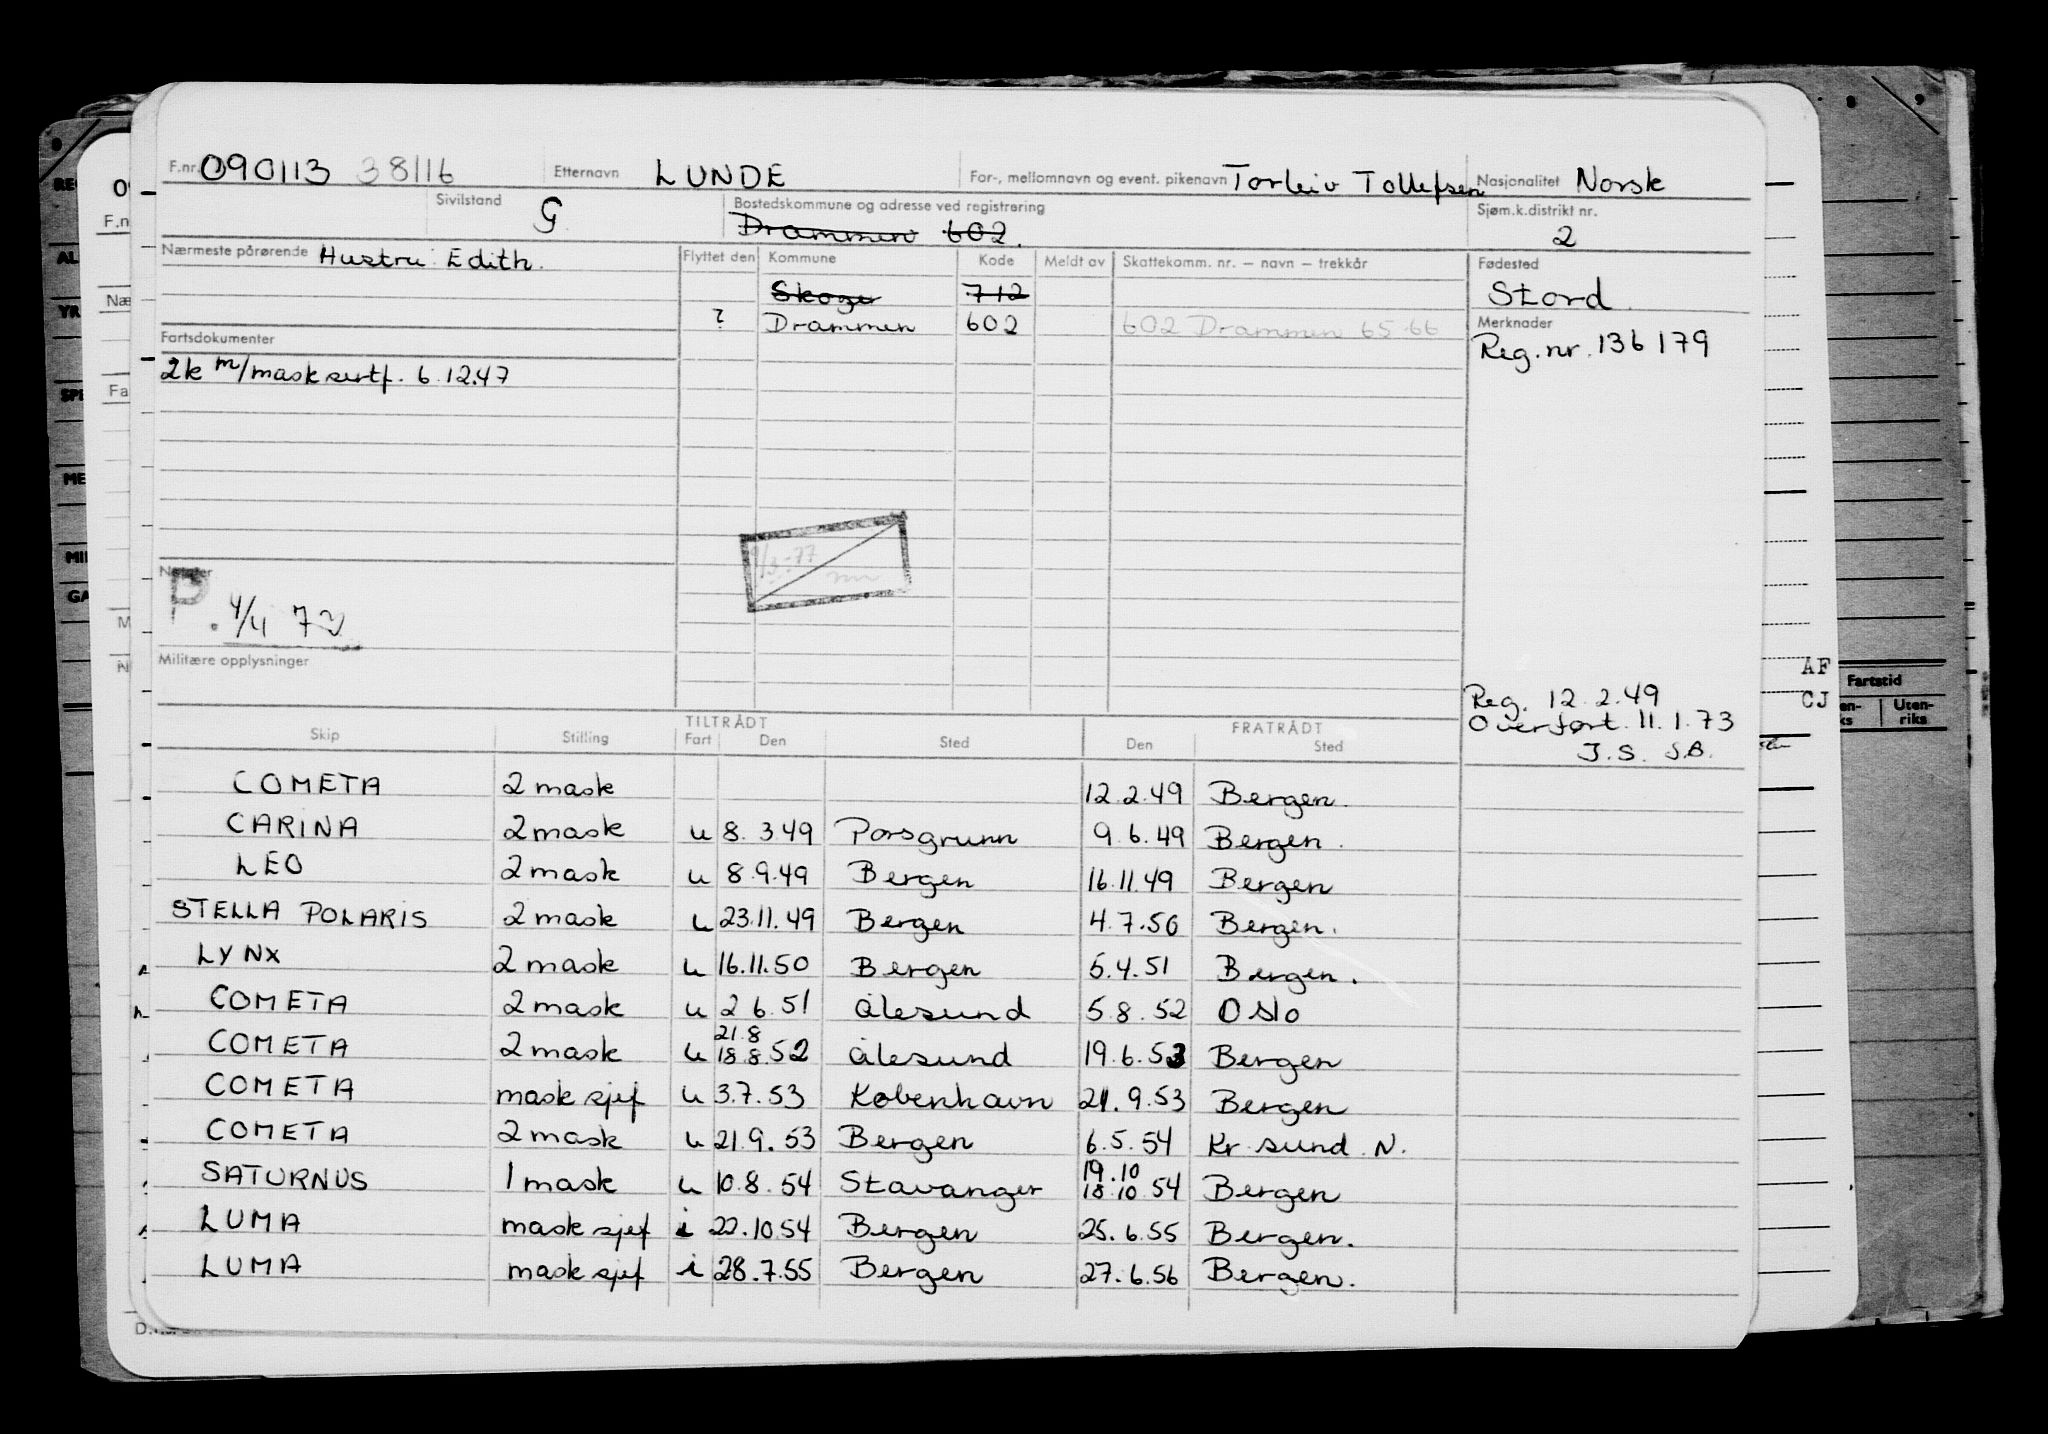 F.nr. 090113 38116 Etternavn LUNDE For-, mellomnavn og event. pikenavn Torleiv Tollefsen Nasjonalitet Norsk
Sivilstand G Bostedskommune og adresse ved registrering Drammen 602. Sjøm.k.distrikt nr. 2
Nærmeste pårørende Hustru Edith. Flyttet den Kommune Kode Meldt av Skattekomm. nr. – navn – trekkår Fødested
Skoger 712 Stord.
? Drammen 602 602 Drammen 65-66 Merknader
Fartsdokumenter Reg.nr. 136179
2k m/mask sertf. 6.12.47
1/3-77
Notater
P. 4/4 72
Militære opplysninger
Reg. 12.2.49
Overført. 11.1.73
J.S. S.B.
TILTRÅDT FRATRÅDT
Skip Stilling Fart Den Sted Den Sted
COMETA 2 mask 12.2.49 Bergen.
CARINA 2 mask u 8.3.49 Porsgrunn 9.6.49 Bergen.
LEO 2 mask u 8.9.49 Bergen 16.11.49 Bergen
STELLA POLARIS 2 mask u 23.11.49 Bergen 4.7.50 Bergen.
LYNX 2 mask u 16.11.50 Bergen 5.4.51 Bergen.
COMETA 2 mask u 2 6.51 Ålesund 5.8.52 Oslo
21.8
COMETA 2 mask u 18.8.52 Ålesund 19.6.53 Bergen
COMETA mask sjef u 3.7.53 København 21.9.53 Bergen
COMETA 2 mask u 21.9.53 Bergen 6.5.54 Kr sund N.
19.10
SATURNUS 1 mask u 10.8.54 Stavanger 18.10.54 Bergen
LUMA mask sjef i 22.10.54 Bergen 25.6.55 Bergen.
LUMA mask sjef i 28.7.55 Bergen 27.6.56 Bergen.
AF
CJ
Fartstid
Uten-
riks